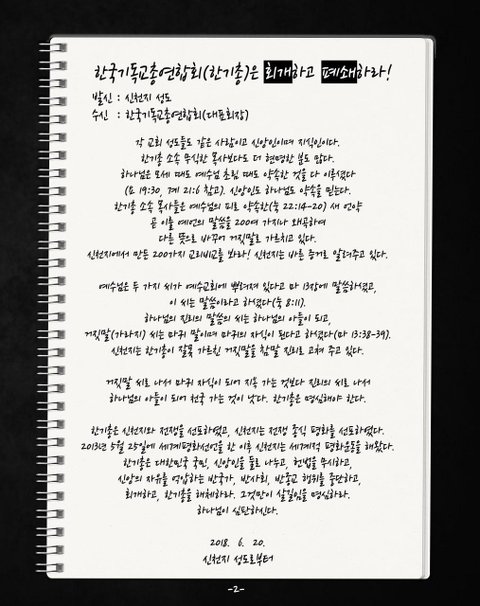 한국기독교총연합회(한기총)은 회개하고 폐쇄하라!
발신 : 신천지 성도
수신 : 한국기독교총연합회(대표회장)
각 교회 성도들도 같은 사람이고 신앙인이며 지식인이다.
한기총 소속 무식한 목사보다도 더 현명한 분도 많다.
하나님은 모세 때도 예수님 초림 때도 약속한 것을 다 이루셨다
(요 19:30, 계 21:6 참고). 신앙인도 하나님도 약속을 믿는다.
한기총 소속 목사들은 예수님의 피로 약속한(눅 22:14-20) 새 언약
곧 이룰 예언의 말씀을 200여 가지나 왜곡하여
다른 뜻으로 바꾸어 거짓말로 가르치고 있다.
신천지에서 만든 200가지 교리비교를 봐라! 신천지는 바른 증거로 알려주고 있다.
예수님은 두 가지 씨가 예수교회에 뿌려져 있다고 마 13장에 말씀하셨고,
이 씨는 말씀이라고 하셨다(눅 8:11).
하나님의 진리의 말씀의 씨는 하나님의 아들이 되고,
거짓말(가라지) 씨는 마귀 말이며 마귀의 자식이 된다고 하셨다(마 13:38-39).
신천지는 한기총이 잘못 가르친 거짓말을 참말 진리로 고쳐 주고 있다.
거짓말 씨로 나서 마귀 자식이 되어 지옥 가는 것보다 진리의 씨로 나서
하나님의 아들이 되어 천국 가는 것이 낫다. 한기총은 명심해야 한다.
한기총은 신천지와 전쟁을 선포하였고, 신천지는 전쟁 종식 평화를 선포하였다.
2013년 5월 25일에 세계평화선언을 한 이후 신천지는 세계적 평화운동을 해왔다.
한기총은 대한민국 국민, 신앙인을 둘로 나누고, 헌법을 무시하고,
신앙의 자유를 억압하는 반국가, 반사회, 반종교 행위를 중단하고,
회개하고, 한기총을 해체하라. 그것만이 살길임을 명심하라.
하나님이 심판하신다.
2018. 6. 20.
신천지 성도로부터
-2-